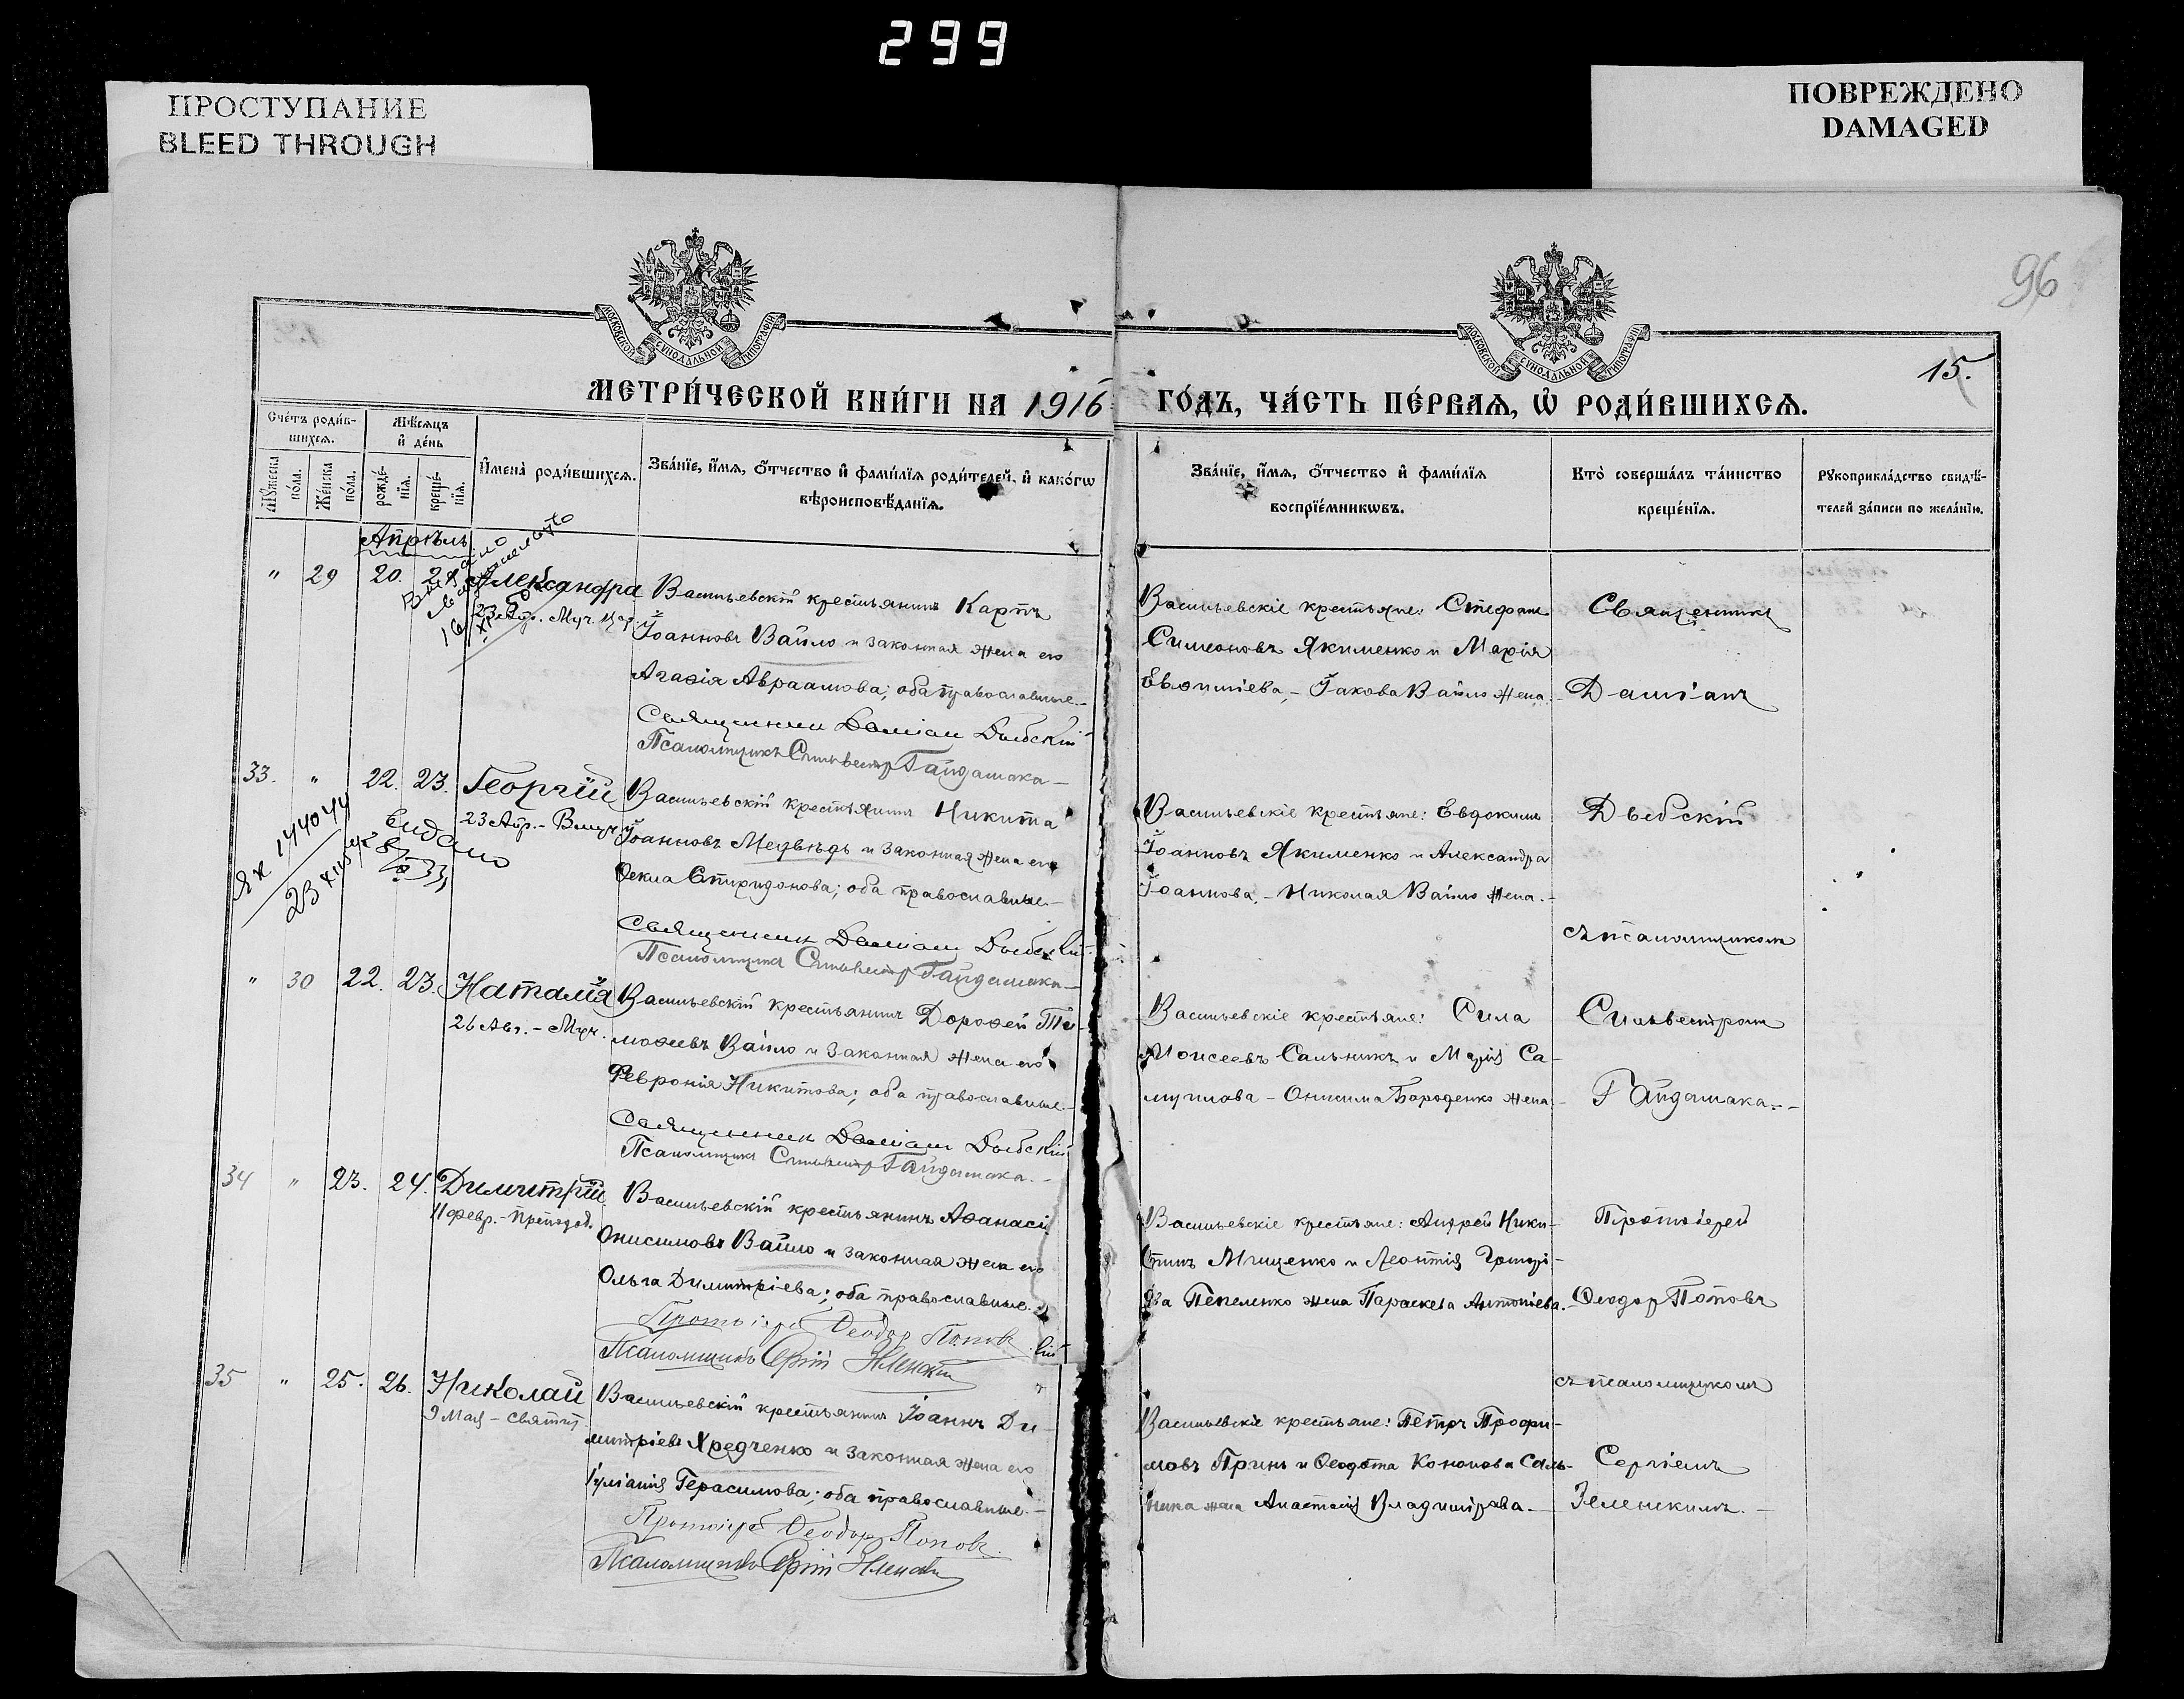 299
ПРОСТУПАНИЕ
BLEED THROUGH
ПОВРЕЖДЕНО
DAMAGED
96
МОСКОВСКОЙ СѴНОДАЛЬНОЙ ТИПОГРАФІИ
МОСКОВСКОЙ СѴНОДАЛЬНОЙ ТИПОГРАФІИ
15.
МЕТРИ́ЧЕСКОЙ КНИ́ГИ НА 1916 ГО́ДЪ, ЧА́СТЬ ПЕ́РВАѦ, Ѡ҆ РОДИ́ВШИХСѦ.
Сче́тъ роди́в-
шихсѧ.
Мѣ́сѧцъ
и҆ де́нь
Мꙋ́жеска
по́ла.
Же́нска
по́ла.
рожде́-
нїѧ.
креще́-
нїѧ.
И҆мена̀ роди́вшихсѧ.
Зва́нїе, и҆́мѧ, ѻ҆́тчество и҆ фами́лїѧ роди́телей, и҆ како́гѡ
вѣроисповѣ́данїѧ.
Зва́нїе, и҆́мѧ, ѻ҆́тчество и҆ фами́лїѧ
воспрїе́мникѡвъ.
Кто̀ соверша́лъ та́инство
креще́нїѧ.
Рꙋкоприкла́дство свидѣ́-
телей за́писи по жела́нїю.
Апрѣль
" 29 20. 21. Александра
23 Апр. Муч. Цар.
Васильевскій крестьянинъ Карпъ
Іоанновъ Вайло и законная жена его
Агаѳія Авраамова; оба православные.–
Священникъ Даміан Дыбскій
Псаломщикъ Сильвестр Гайдамака –
Васильевскіе крестьяне: Стефанъ
Симеоновъ Якименко и Марія
Евѳиміева, – Іакова Вайло жена.
Священникъ
Даміанъ
33. " 22. 23. Георгій
23 Апр. – Вмуч.
видано
Васильевскій крестьянинъ Никита
Іоанновъ Медвѣдь и законная жена его
Ѳекла Спиридонова; оба православные.–
Священник Даміан Дыбскій
Псаломщикъ Сильвестр Гайдамака –
Васильевскіе крестьяне: Евдокимъ
Іоанновъ Якименко и Александра
Іоаннова, – Николая Вайло жена. –
Дыбскій
съ псаломщикомъ
" 30 22. 23. Наталія
26 Авг. – Муч.
Васильевскій крестьянинъ Дороѳей Ти-
моѳеевъ Вайло и законная жена его
Февронія Никитова; оба православные.–
Священник Даміан Дыбскій
Псаломщикъ Сильвестр Гайдамака. –
Васильевскіе крестьяне: Сила
Моисеевъ Сальникъ и Марія Са-
муилова – Онисима Бороденко жена –
Сильвестромъ
Гайдамака. –
34 " 23. 24. Димитрій
11 февр. – Преподоб.
Васильевскій крестьянинъ Аѳанасій
Онисимовъ Вайло и законная жена его
Ольга Димитріева; оба православные.
Протоіерей Ѳеодор Попов
Псаломщикъ Сергій Зленскій
Васильевскіе крестьяне: Андрей Ники-
тинъ Мищенко и Леонтія Григорі-
ева Пепеленко жена Параскева Антоніева. –
Протоіерей
Ѳеодор Поповъ
съ псаломщикомъ
35 " 25. 26. Николай
9 Мая – Святит.
Васильевскій крестьянинъ Іоаннъ Ди-
митріевъ Яредченко и законная жена его
Іуліанія Герасимова; оба православные. –
Протоіерей Ѳеодор Поповъ.
Псаломщикъ Сергій
Васильевскіе крестьяне: Петръ Трофи-
мовъ Принь и Ѳеодота Кононова Саль-
ника жена Анастасія Владимірова. –
Сергіемъ
Зеленскимъ. –